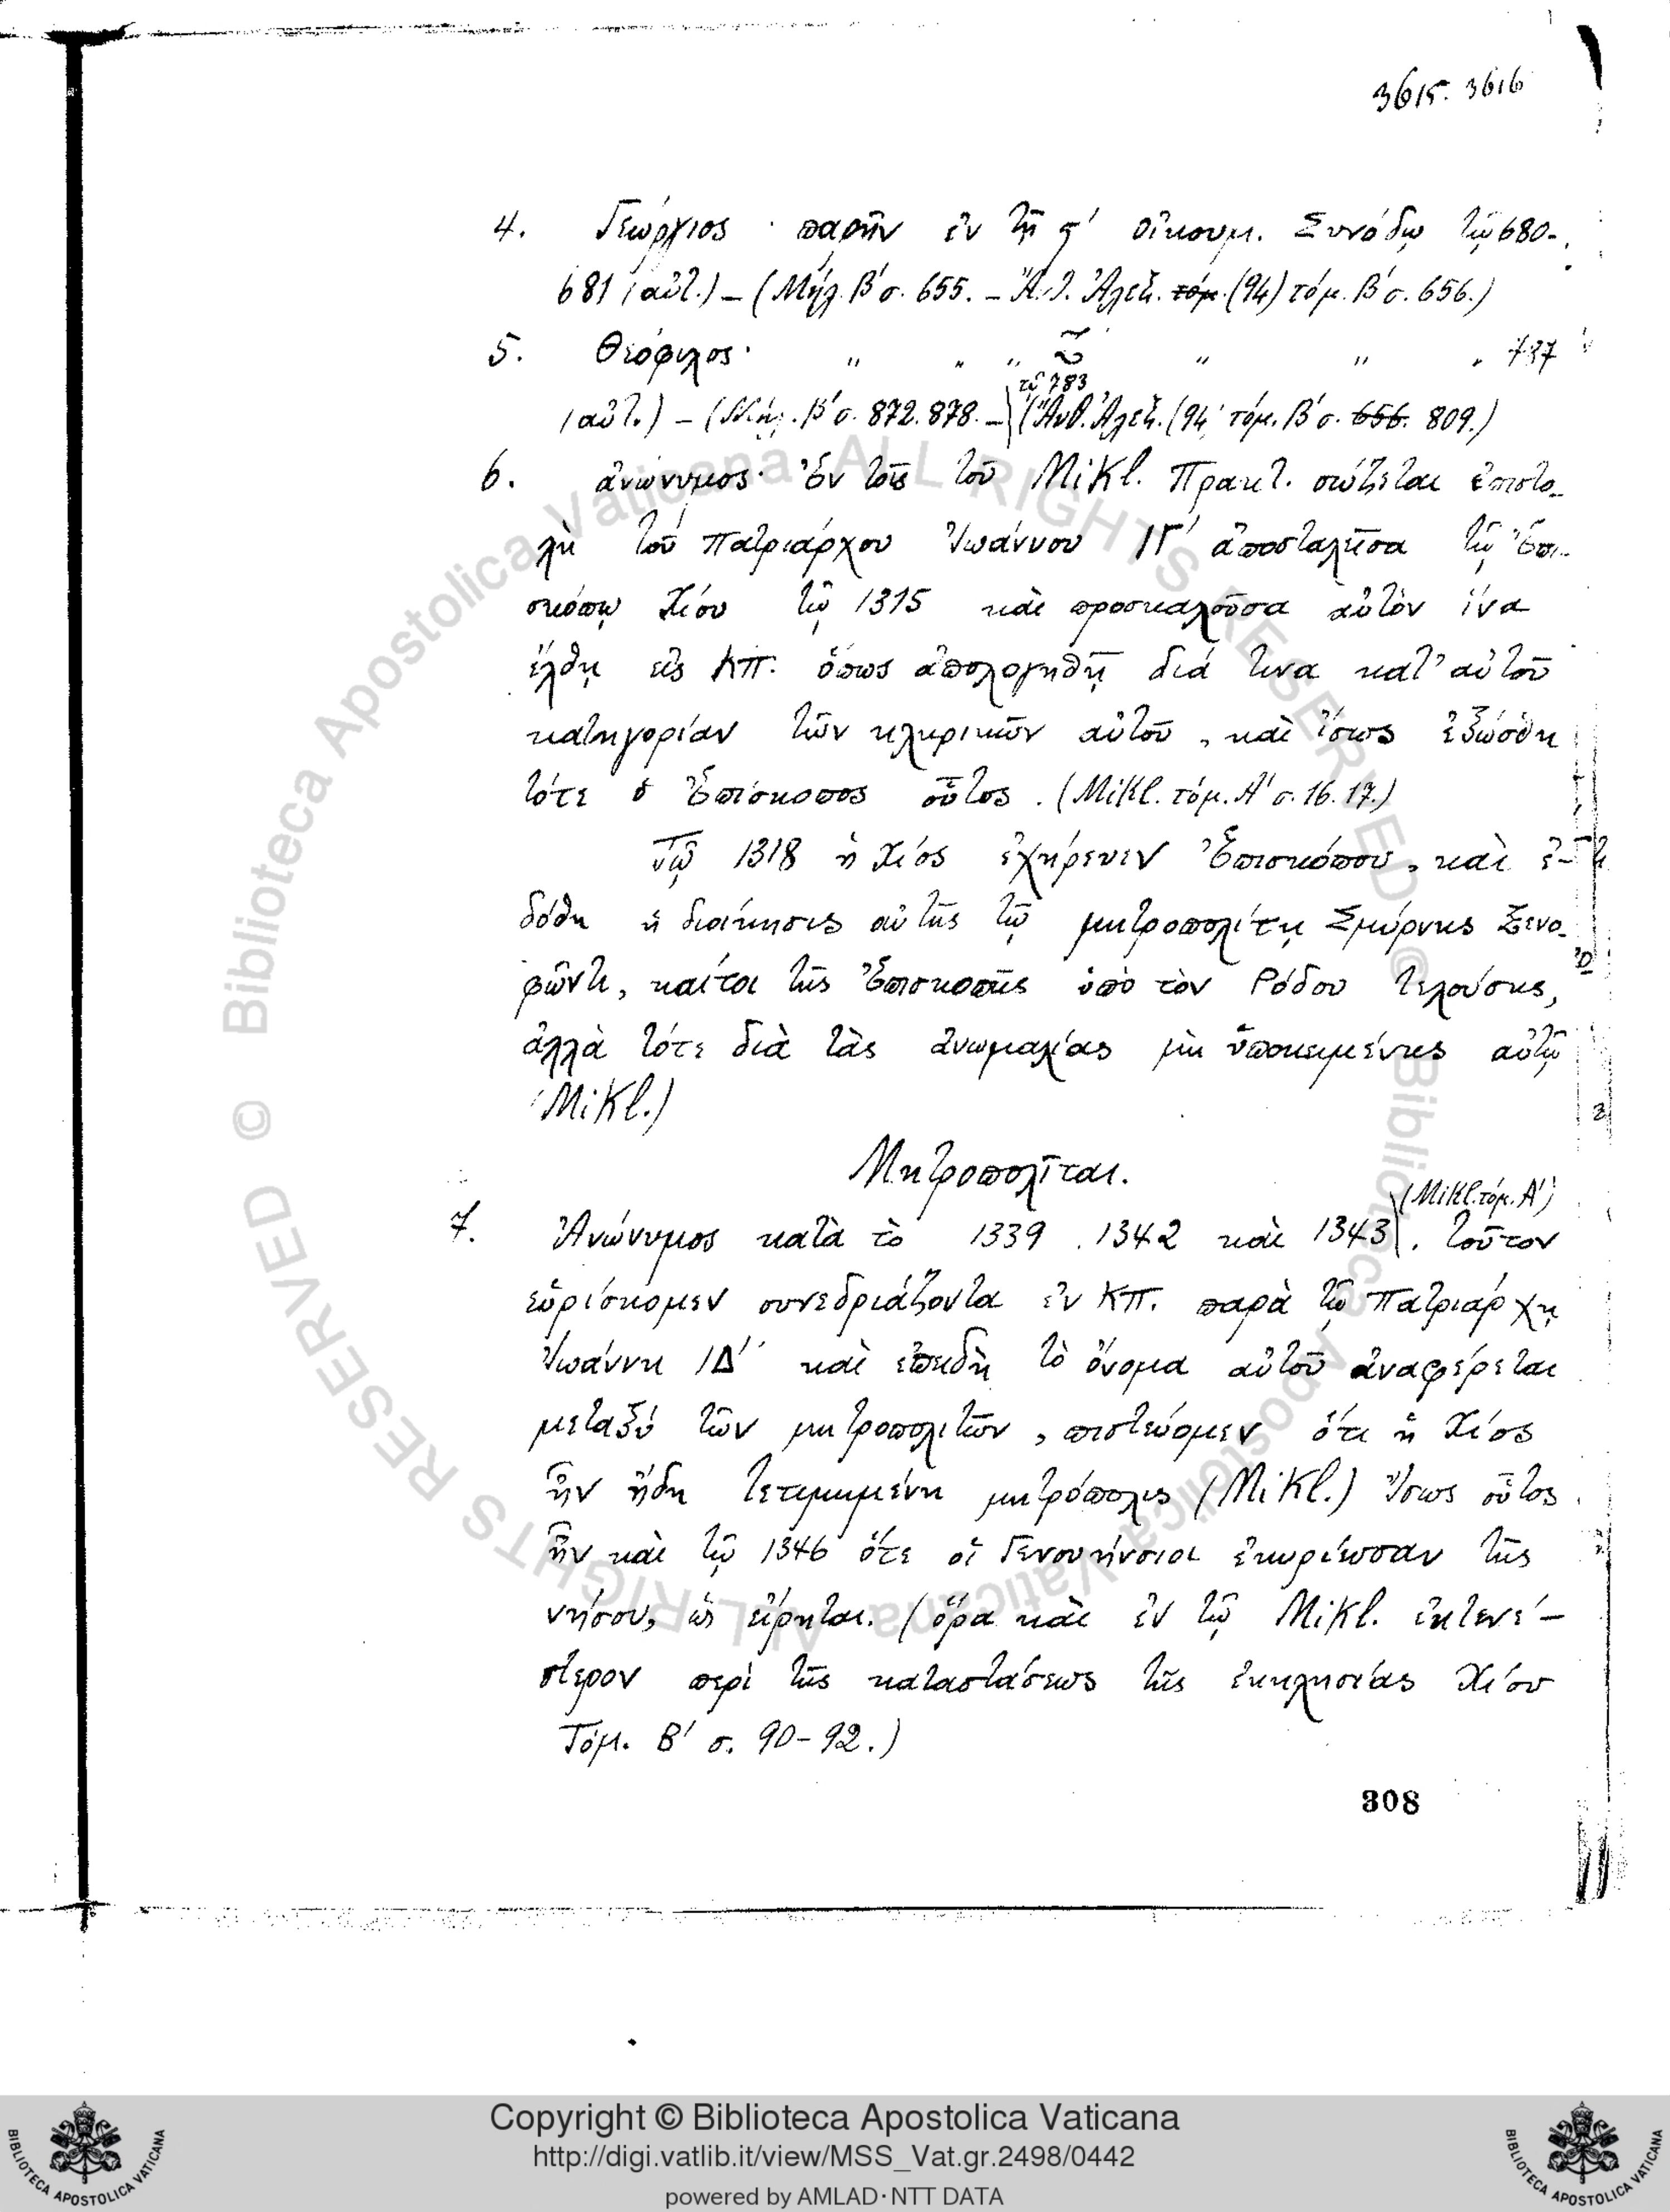 3615. 3616
4. Γεώργιος · παρῆν ἐν τῇ ϛ′ οἰκουμ. Συνόδῳ τῷ 680-
681 (αὐτ.) – (Μήλ. Β′ σ. 655. – Ἀ. Ἀλεξ. τόμ. (94) τόμ. Β′ σ. 656.)
5. Θεόφιλος · " " " ζ " " " 787
τῷ 783
(αὐτ.) – (Μήλ. Β′ σ. 872. 878. – (Ἄνθ. Ἀλεξ. (94) τόμ. Β′ σ. 656. 809.)
6. ἀνώνυμος · Ἐν τοῖς τοῦ Mikl. Πρακτ. σώζεται ἐπιστο-
λὴ τοῦ Πατριάρχου Ἰωάννου ΙΓ′ ἀποσταλεῖσα τῷ Ἐπι-
σκόπῳ Χίου τῷ 1315 καὶ προσκαλοῦσα αὐτὸν ἵνα
ἔλθῃ εἰς ΚΠ. ὅπως ἀπολογηθῇ διά τινα κατ' αὐτοῦ
κατηγορίαν τῶν κληρικῶν αὐτοῦ, καὶ ἴσως ἐξώσθη
τότε ὁ Ἐπίσκοπος οὗτος. (Mikl. τόμ. Α′ σ. 16. 17.)
Τῷ 1318 ἡ Χίος ἐχήρευεν Ἐπισκόπου, καὶ ἐ-
δόθη ἡ διοίκησις αὐτῆς τῷ μητροπολίτῃ Σμύρνης Ξενο-
φῶντι, καίτοι τῆς Ἐπισκοπῆς ὑπὸ τὸν Ῥόδου τελούσης,
ἀλλὰ τότε διὰ τὰς ἀνωμαλίας μὴ ὑποκειμένης αὐτῷ
(Mikl.)
Μητροπολῖται.
(Mikl. τόμ. Α′)
7. Ἀνώνυμος κατὰ τὸ 1339. 1342 καὶ 1343. τοῦτον
εὑρίσκομεν συνεδριάζοντα ἐν ΚΠ. παρὰ τῷ Πατριάρχῃ
Ἰωάννῃ ΙΔ′ καὶ ἐπειδὴ τὸ ὄνομα αὐτοῦ ἀναφέρεται
μεταξὺ τῶν μητροπολιτῶν, πιστεύομεν ὅτι ἡ Χίος
ἦν ἤδη τετιμημένη μητρόπολις (Mikl.) Ἴσως οὗτος
ἦν καὶ τῷ 1346 ὅτε οἱ Γενουήνσιοι ἐκυρίευσαν τῆς
νήσου, ὡς εἴρηται. (ὅρα καὶ ἐν τῷ Mikl. ἐκτενέ-
στερον περὶ τῆς καταστάσεως τῆς ἐκκλησίας Χίου
Τόμ. Β′ σ. 90-92.)
308
© Biblioteca Apostolica Vaticana ALL RIGHTS RESERVED
© Biblioteca Apostolica Vaticana ALL RIGHTS RESERVED
Copyright © Biblioteca Apostolica Vaticana
http://digi.vatlib.it/view/MSS_Vat.gr.2498/0442
powered by AMLAD·NTT DATA
BIBLIOTECA APOSTOLICA VATICANA
BIBLIOTECA APOSTOLICA VATICANA